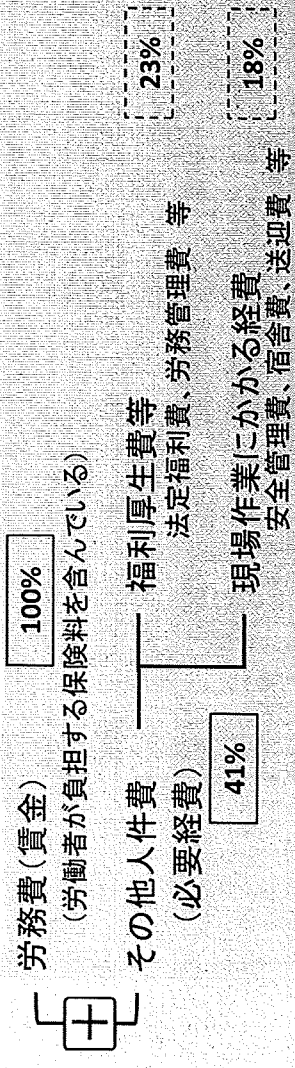 労務費(賃金) 100%
(労働者が負担する保険料を含んでいる)
+
その他人件費
(必要経費)
41%
福利厚生費等
法定福利費、労務管理費 等
23%
現場作業にかかる経費
安全管理費、宿舎費、送迎費 等
18%